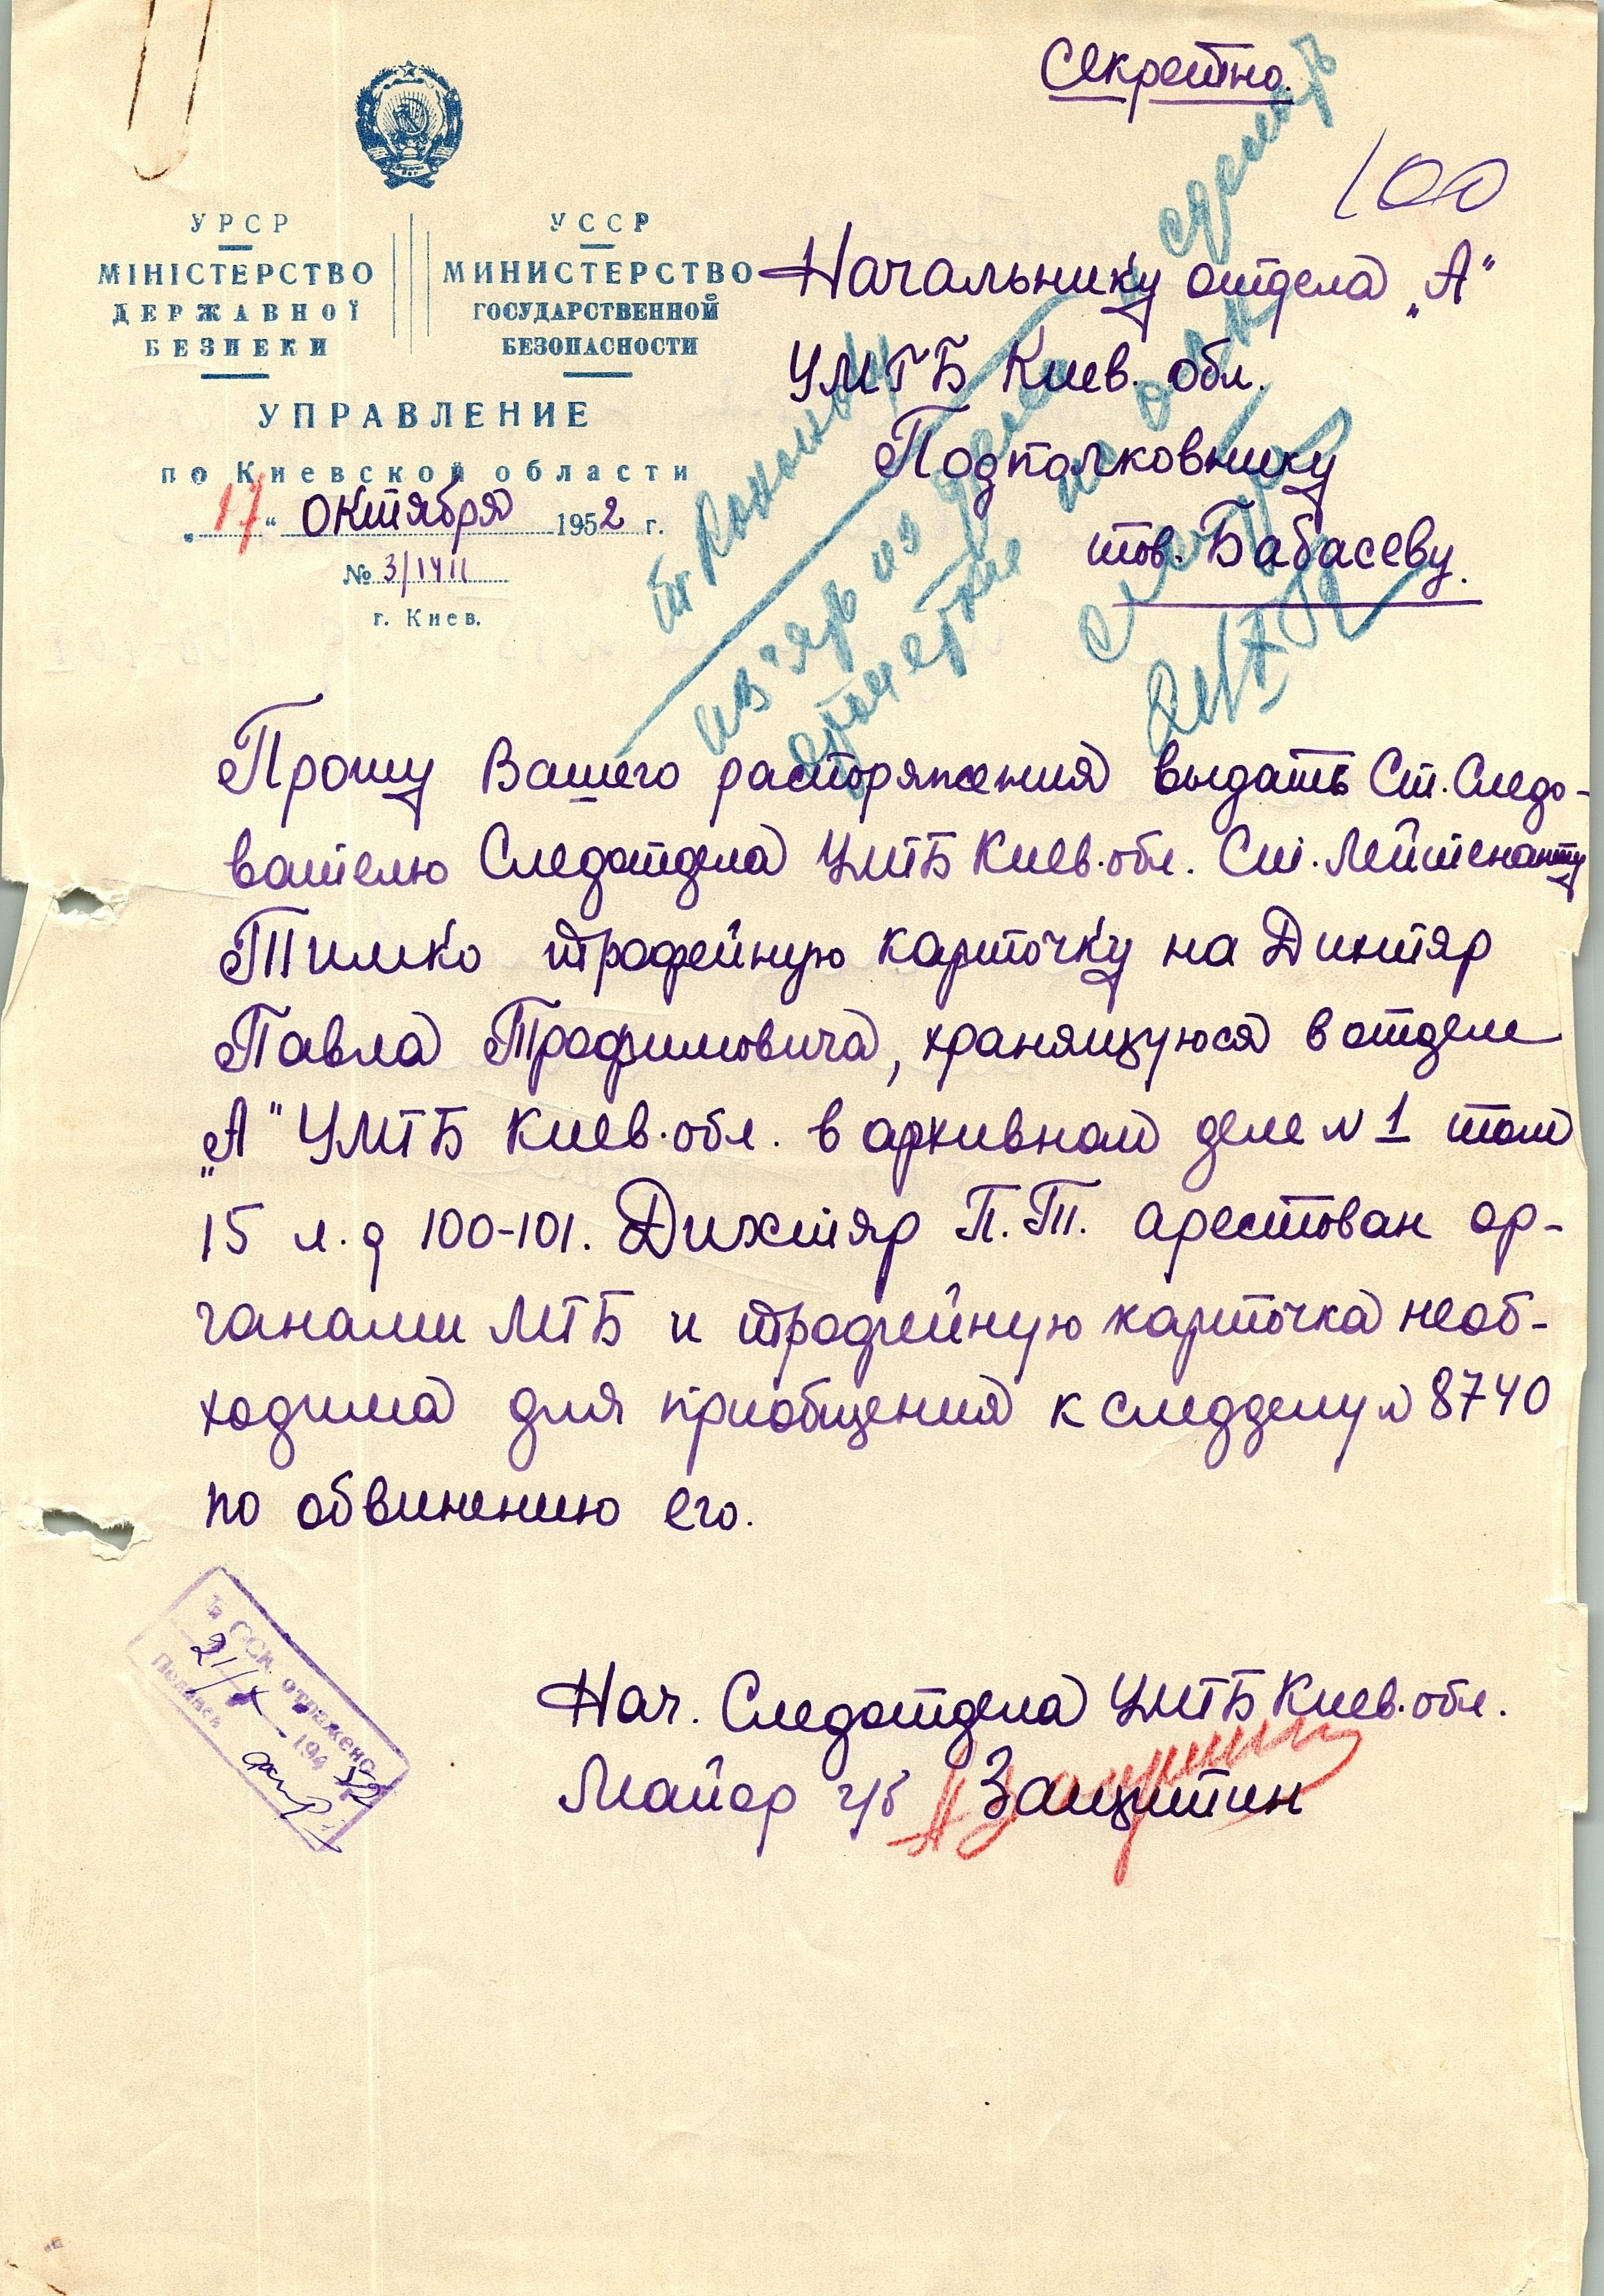 Секретно.
100
УРСР
МІНІСТЕРСТВО
ДЕРЖАВНОЇ
БЕЗПЕКИ
УССР
МИНИСТЕРСТВО
ГОСУДАРСТВЕННОЙ
БЕЗОПАСНОСТИ
УПРАВЛЕНИЕ
по Киевской области
„17“ октября 1952 г.
№ 3/1411
г. Киев.
Начальнику отдела „А"
УМГБ Киев. обл.
Подполковнику
тов. Бабасеву.
Прошу Вашего распоряжения выдать Ст. Следо-
вателю Следотдела УМГБ Киев. обл. Ст. Лейтенанту
Тимко трофейную карточку на Дихтяр
Павла Трофимовича, хранящуюся в отделе
„А" УМГБ Киев. обл. в архивном деле N 1 том
15 л. д 100-101. Дихтяр П. Т. арестован ор-
ганами МГБ и трофейную карточка необ-
ходима для приобщения к следделу N 8740
по обвинению его.
Нач. Следотдела УМГБ Киев. обл.
Майор г/б Защитин
отражено
21/X – 1952